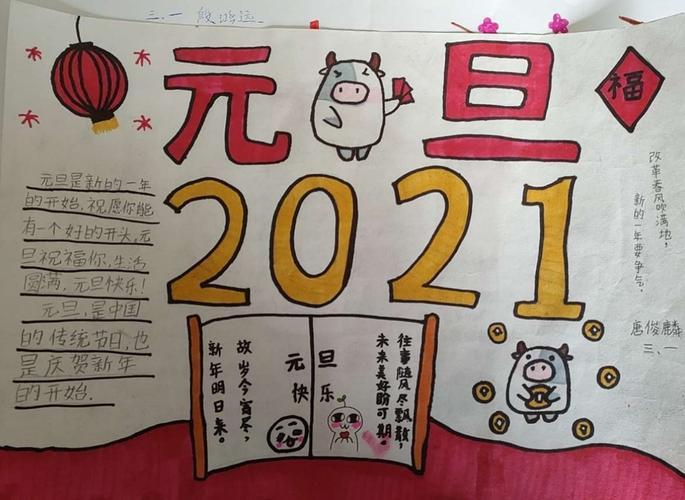 三.一 殷鸿远
元旦
福
2021
元旦是新的一年
的开始.祝愿你能
有一个好的开头.元
旦祝福你,生活
圆满,元旦快乐!
元旦,是中国
的传统节日,也
是庆贺新年
的开始.
改革春风吹满地,
新的一年要争气.
唐俊麟
三.一
往事随风尽飘散,
未来美好盼可期.
元旦
快乐
故岁今宵尽,
新年明日来。